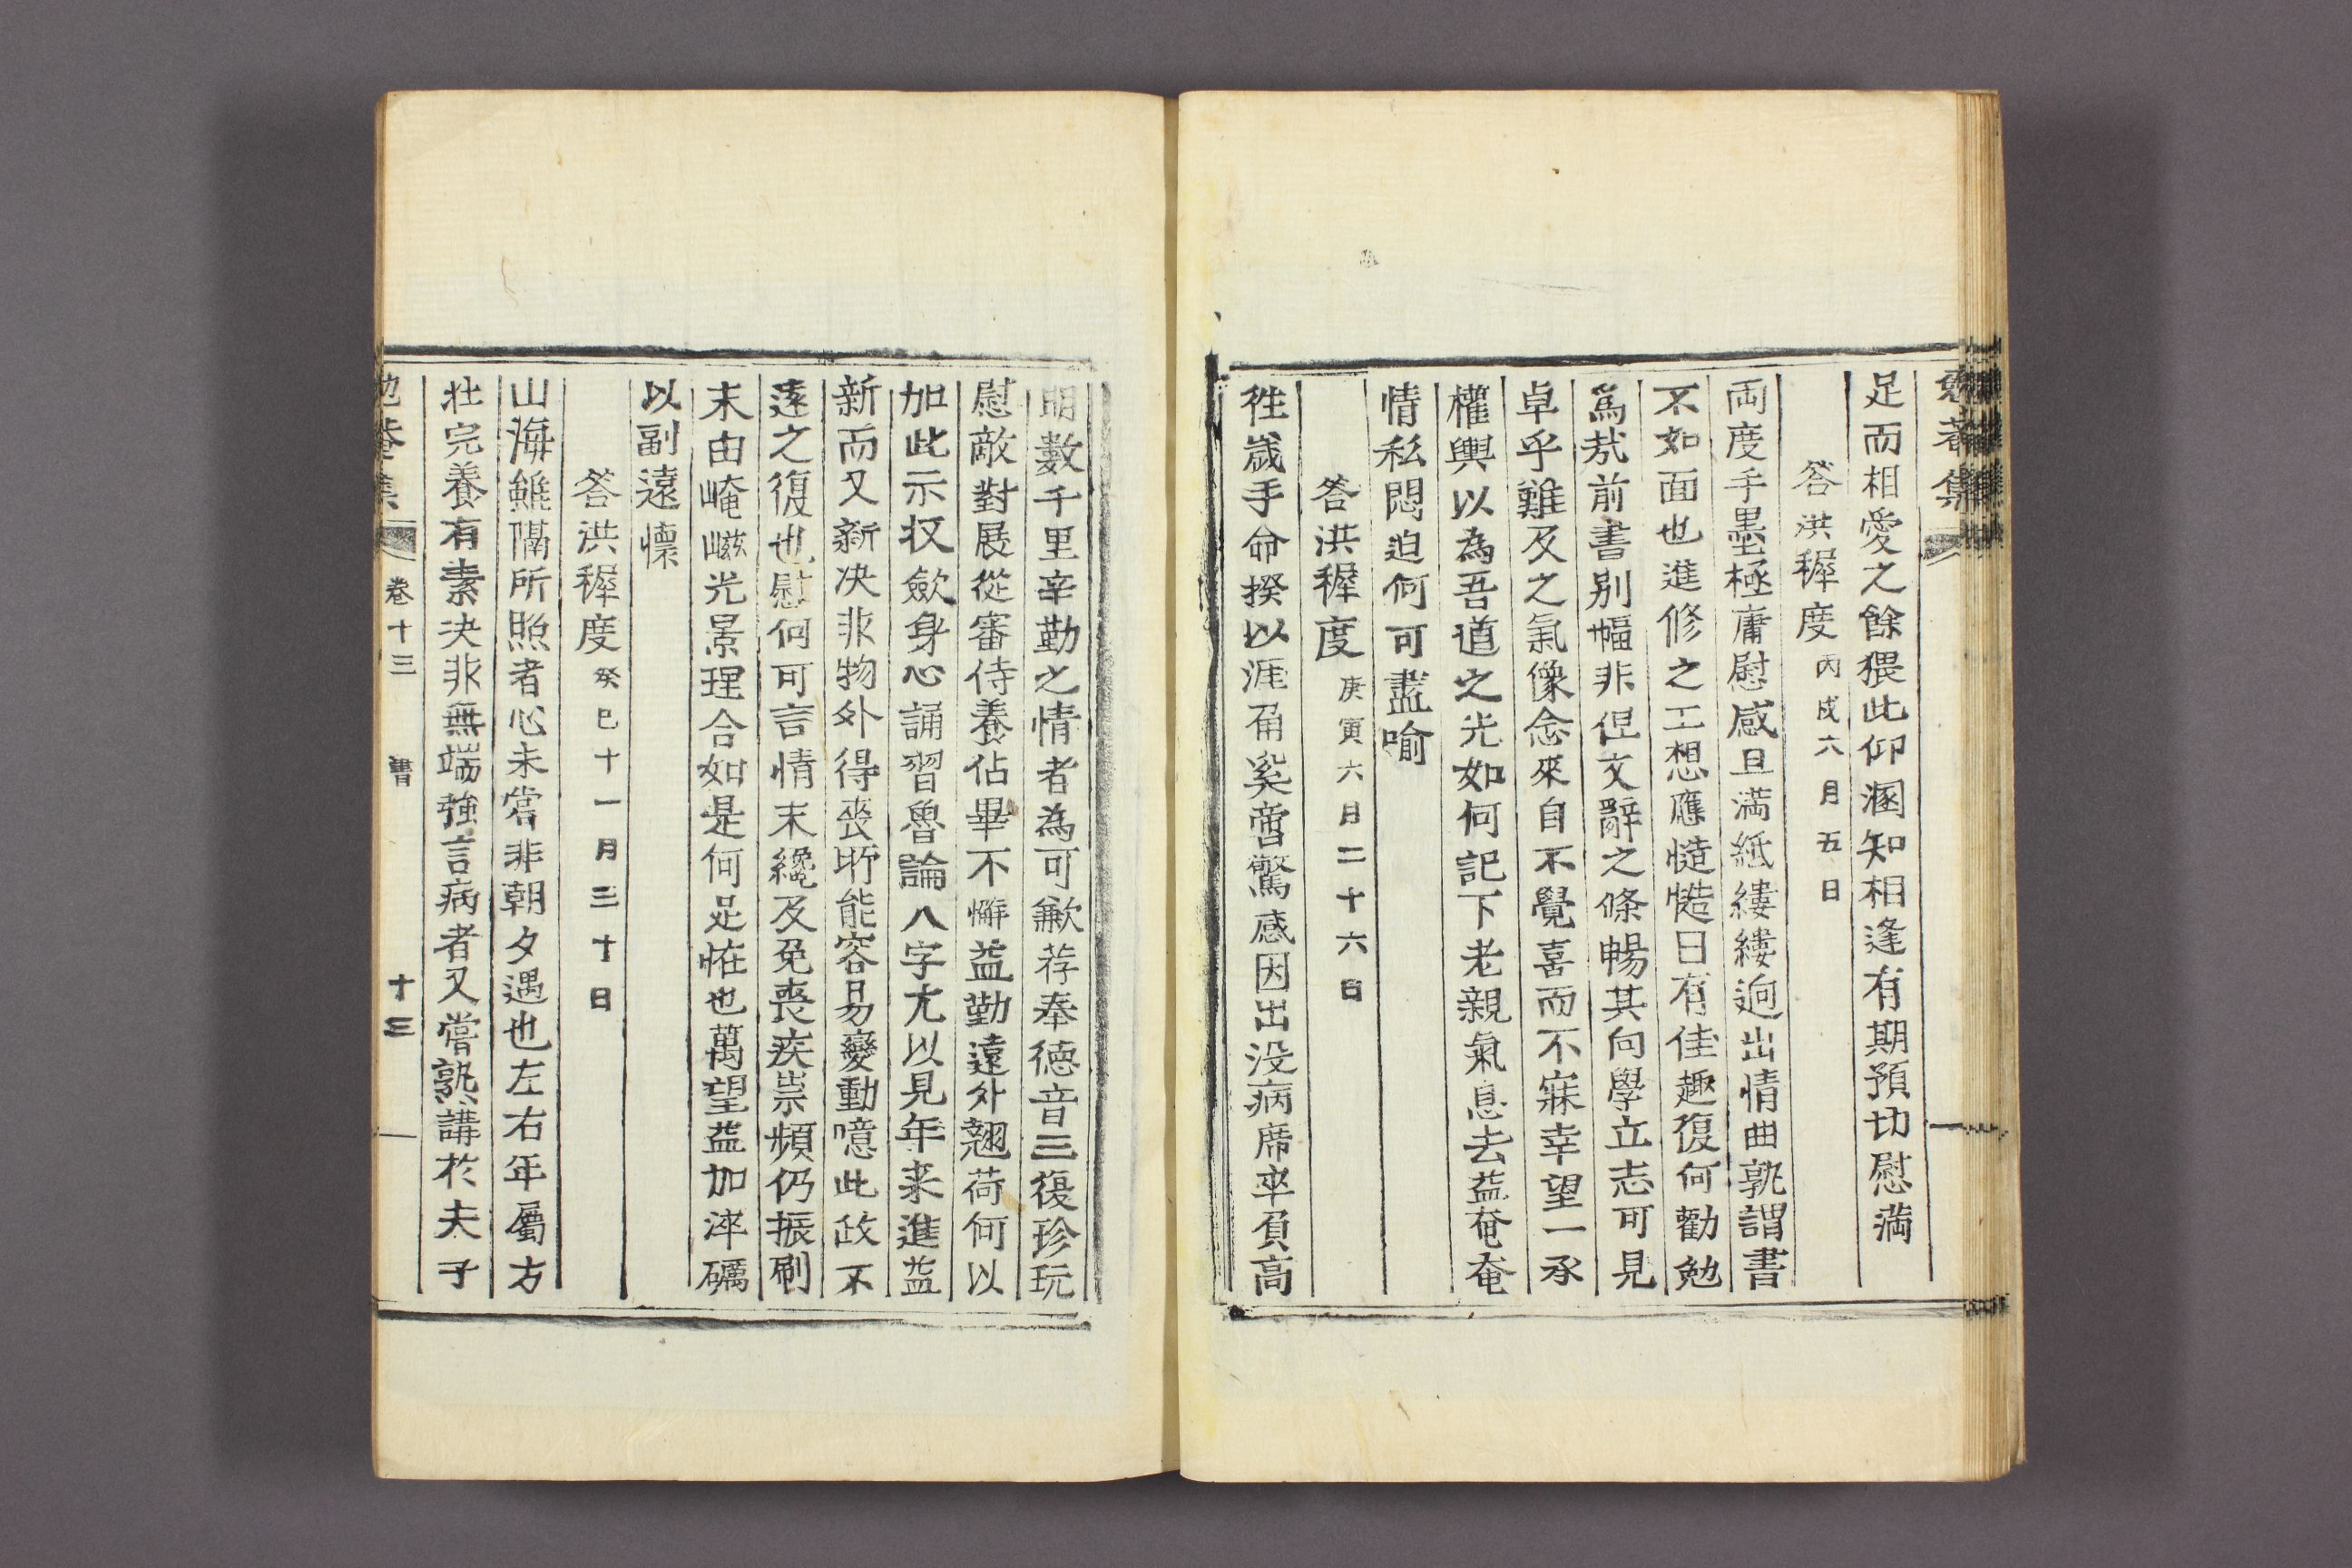 足而相愛之餘猥此仰溷知相逢有期預切慰満
答洪穉度 丙戌六月五日
両度手墨極庸慰感且満紙縷縷逈出情曲孰謂書
不如面也進修之工想應慥慥日有佳趣復何勸勉
爲㢤前書别幅非但文辭之條暢其向學立志可見
卓乎難及之氣像念來自不覺喜而不寐幸望一承
權輿以為吾道之光如何記下老親氣息去益奄奄
情私悶迫何可盡喻
答洪穉度 庚寅六月二十六日
徃歲手命揆以涯甭奚啻驚感因出没病席卒負高
明數千里辛勤之情者為可歉荐奉德音三復珍玩
慰敵對展從審侍養佔畢不懈益勤遠外翹荷何以
加此示扠歛身心誦習魯論八字尤以見年来進益
新而又新决非物外得喪所能容易變動噫此政不
遠之復也慰何可言情末纔及免喪疾祟頻仍振刷
末由崦嵫光景理合如是何足恠也萬望益加淬礪
以副遠懷
答洪穉度 癸巳十一月三十日
山海雖隔所照者心未嘗非朝夕遇也左右年屬方
壮完養有素决非無端強言病者又嘗熟講於夫子
卷十三 書 十三